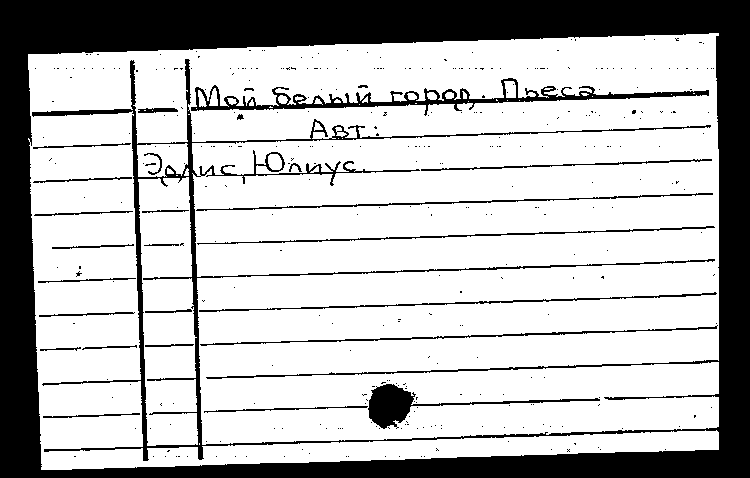 Мой белый город. Пьеса.
Авт.:
Эдлис, Юлиус.